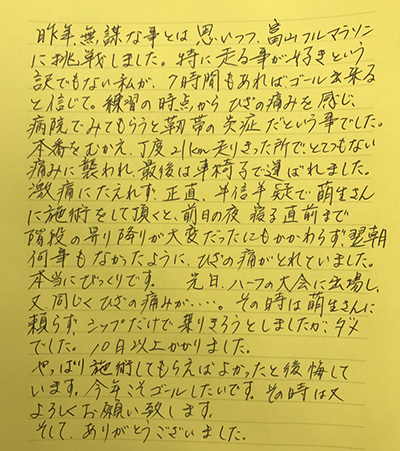 昨年、無謀な事とは思いつつ、富山フルマラソン
に挑戦しました。特に走る事が好きという
訳でもない私が、7時間もあればゴール出来る
と信じて。練習の時点からひざの痛みを感じ、
病院でみてもらうと靭帯の炎症だという事でした。
本番をむかえ、丁度21km走りきった所でとてつもない
痛みに襲われ、最後は車椅子で運ばれました。
激痛にたえれず、正直、半信半疑で萌生さん
に施術をして頂くと、前日の夜寝る直前まで
階段の昇り降りが大変だったにもかかわらず、翌朝
何事もなかったように、ひざの痛がとれていました。
本当にびっくりです。 先日、ハーフの大会に出場し、
又、同じくひざの痛みが・・・・。 その時は萌生さんに
頼らず シップだけで乗りきろうとしましたが、ダメ
でした。10日以上かかりました。
やっぱり施術してもらえばよかったと後悔して
います。今年こそゴールしたいです。その時は又
よろしくお願い致します。
そして、ありがとうございました。